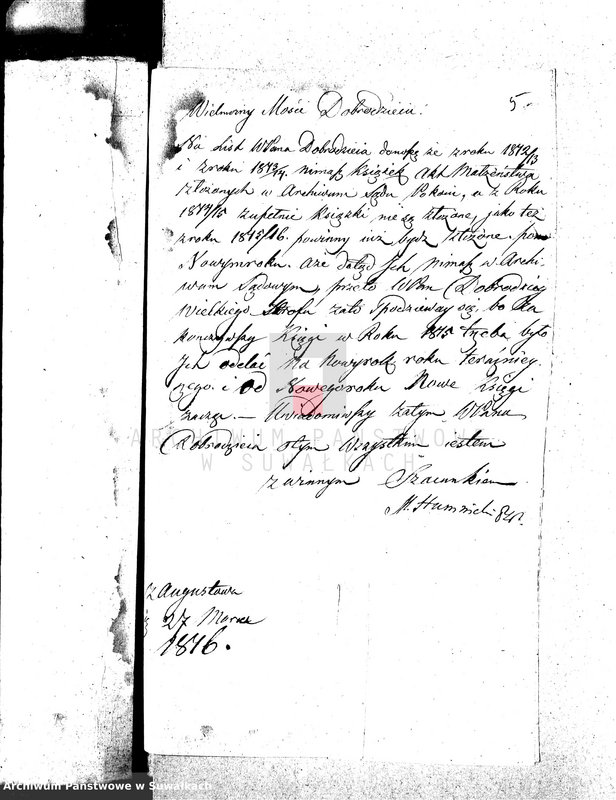 5
Wielmożny Mości Dobrodzieiu!
Na List WPana Dobrodzieia donoszę że z roku 1812/13
i z roku 1813/14 nimasz Książek Akt Małżeństwa
złożonych w Archiwum Sądu Pokoiu, a z Roku
1814/15 zupełnie książki nie są złożone, jako też
z roku 1815/16. powinny iuż bydz złożone po
Nowymroku. Aże dotąd Ich nimasz w Archi-
wum Sądowym, przeto WPan Dobrodziey
Wielkiego Strofu zato spodzieway się, bo Za
konczywszy Księgi w Roku 1815 trzeba było
Ich oddać na Nowyrok roku teraźniey-
szego. i od Nowegoroku Nowe Księgi
zacząć.— Uwiadomiwszy zatym WPana
Dobrodzieia otym Wszystkim iestem
z winnym Szacunkiem
M.
z Augustowa
27 Marca
1816.
ARCHIWUM PAŃSTWOWE
W SUWAŁKACH
Archiwum Państwowe w Suwałkach